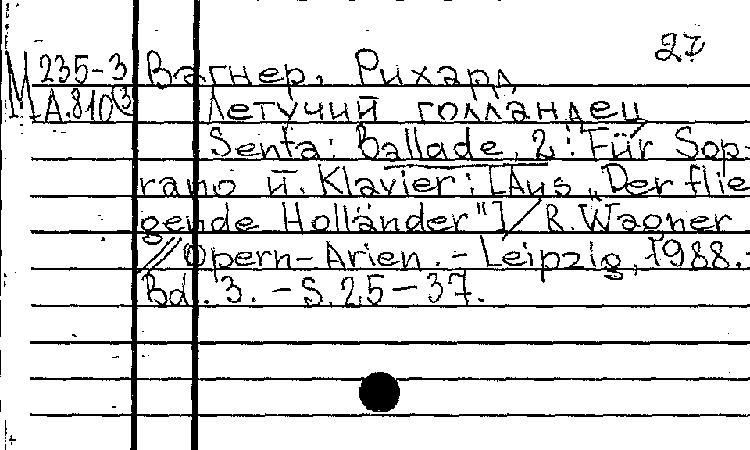 27
М 235-3 Вагнер, Рихард
М А.810③ Летучий голландец
Senta: Ballade, 2 : Für Sop-
rano ü. Klavier: [Aus „Der flie
gende Holländer"] / R. Wagner
// Opern-Arien. - Leipzig, 1988. -
Bd. 3. - S. 25-37.